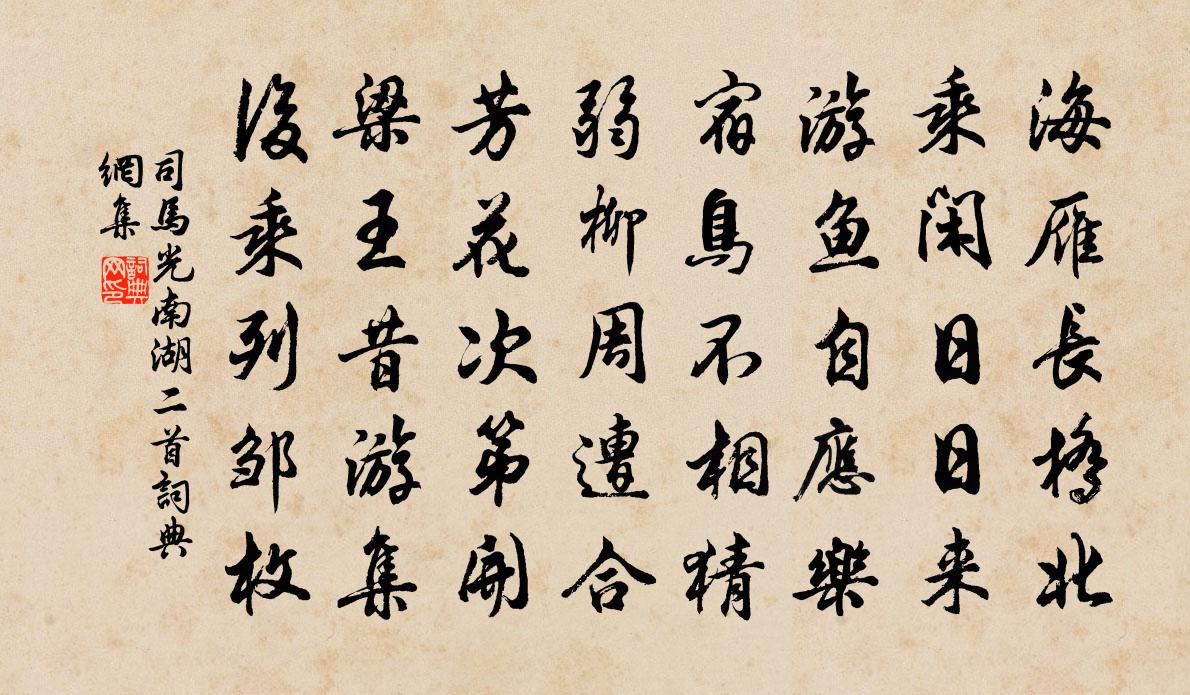 海雁長橋北
乘閑日日来
游魚自應樂
宿鳥不相猜
弱柳周遭合
芳花次第開
梁王昔游集
後乘列邹枚
司馬光南湖二首詞典
網集
詞典
网印